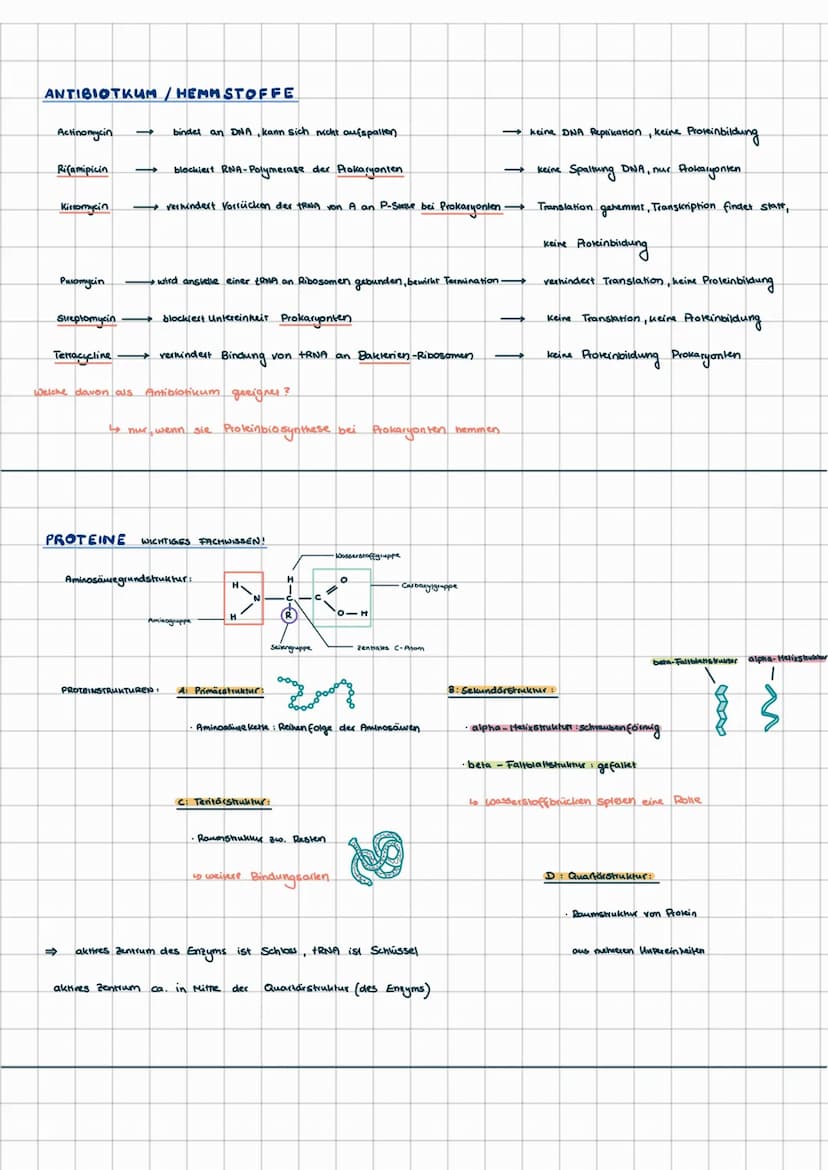 ANTIBIOTKUM / HEMMSTOFFE
Actinomycin → bindet an DNA, kann sich nicht aufspalten → keine DNA Replikation, keine Proteinbildung
Rifamipicin → blockiert RNA-Polymerase der Prokaryonten → keine Spaltung DNA, nur Prokaryonten
Kirromycin → verhindert Vorrücken der tRNA von A an P-Stelle bei Prokaryonten → Translation gehemmt, Transkription findet statt,
keine Proteinbildung
Puromycin → wird anstelle einer tRNA an Ribosomen gebunden, bewirkt Termination → verhindert Translation, keine Proteinbildung
Streptomycin → blockiert Untereinheit Prokaryonten → keine Translation, keine Proteinbildung
Tetracycline → verhindert Bindung von tRNA an Bakterien-Ribosomen → keine Proteinbildung Prokaryonten
Welche davon als Antibiotikum geeignet?
↳ nur, wenn sie Proteinbiosynthese bei Prokaryonten hemmen
PROTEINE WICHTIGES FACHWISSEN!
Wasserstoffgruppe
Aminosäuregrundstruktur:
H H O
Carboxylgruppe
N C C
H R O-H
Aminogruppe
Seitengruppe zentrales C-Atom
beta-Faltblattstruktur alpha-Helixstruktur
PROTEINSTRUKTUREN: A: Primärstruktur: B: Sekundärstruktur:
· Aminosäurekette: Reihenfolge der Aminosäuren · alpha-Helixstruktur: schraubenförmig
· beta-Faltblattstruktur: gefaltet
C: Teritärstruktur: ↳ Wasserstoffbrücken spielen eine Rolle
· Raumstruktur zw. Resten
↳ weitere Bindungsarten D: Quartärstruktur:
· Raumstruktur von Protein
⇒ aktives Zentrum des Enzyms ist Schloss, tRNA ist Schlüssel aus mehreren Untereinheiten
aktives Zentrum ca. in Mitte der Quartärstruktur (des Enzyms)